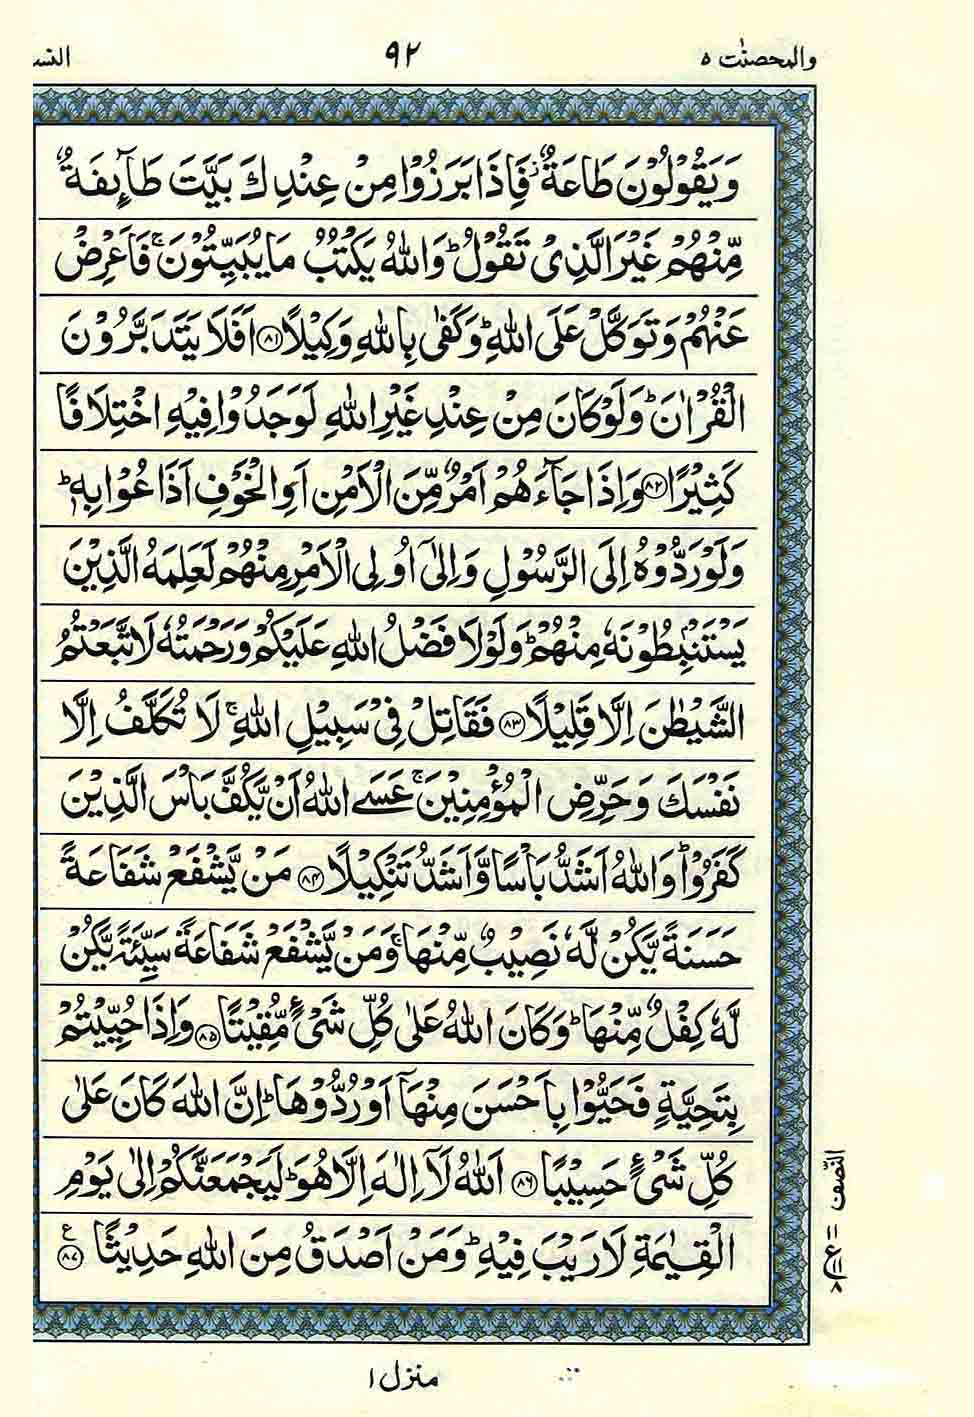 والمحصنٰت ٥
٩٢
وَيَقُوْلُوْنَ طَاعَةٌ ۡ فَاِذَا بَرَزُوْا مِنْ عِنْدِكَ بَيَّتَ طَآئِفَةٌ
مِّنْهُمْ غَيْرَ الَّذِىْ تَقُوْلُ ؕ وَاللّٰهُ يَكْتُبُ مَا يُبَيِّتُوْنَ ۚ فَاَعْرِضْ
عَنْهُمْ وَتَوَكَّلْ عَلَى اللّٰهِ ؕ وَكَفٰى بِاللّٰهِ وَكِيْلًا ﴿٨١﴾ اَفَلَا يَتَدَبَّرُوْنَ
الْقُرْاٰنَ ؕ وَلَوْ كَانَ مِنْ عِنْدِ غَيْرِ اللّٰهِ لَوَجَدُوْا فِيْهِ اخْتِلَافًا
كَثِيْرًا ﴿٨٢﴾ وَاِذَا جَآءَهُمْ اَمْرٌ مِّنَ الْاَمْنِ اَوِ الْخَوْفِ اَذَاعُوْا بِهٖ ؕ
وَلَوْ رَدُّوْهُ اِلَى الرَّسُوْلِ وَاِلٰٓى اُولِى الْاَمْرِ مِنْهُمْ لَعَلِمَهُ الَّذِيْنَ
يَسْتَنْۢبِطُوْنَهٗ مِنْهُمْ ؕ وَلَوْلَا فَضْلُ اللّٰهِ عَلَيْكُمْ وَرَحْمَتُهٗ لَاتَّبَعْتُمُ
الشَّيْطٰنَ اِلَّا قَلِيْلًا ﴿٨٣﴾ فَقَاتِلْ فِىْ سَبِيْلِ اللّٰهِ ۚ لَا تُكَلَّفُ اِلَّا
نَفْسَكَ وَحَرِّضِ الْمُؤْمِنِيْنَ ۚ عَسَى اللّٰهُ اَنْ يَّكُفَّ بَاْسَ الَّذِيْنَ
كَفَرُوْا ؕ وَاللّٰهُ اَشَدُّ بَاْسًا وَّاَشَدُّ تَنْكِيْلًا ﴿٨٤﴾ مَنْ يَّشْفَعْ شَفَاعَةً
حَسَنَةً يَّكُنْ لَّهٗ نَصِيْبٌ مِّنْهَا ۚ وَمَنْ يَّشْفَعْ شَفَاعَةً سَيِّئَةً يَّكُنْ
لَّهٗ كِفْلٌ مِّنْهَا ؕ وَكَانَ اللّٰهُ عَلٰى كُلِّ شَىْءٍ مُّقِيْتًا ﴿٨٥﴾ وَاِذَا حُيِّيْتُمْ
بِتَحِيَّةٍ فَحَيُّوْا بِاَحْسَنَ مِنْهَآ اَوْ رُدُّوْهَا ؕ اِنَّ اللّٰهَ كَانَ عَلٰى
كُلِّ شَىْءٍ حَسِيْبًا ﴿٨٦﴾ اَللّٰهُ لَآ اِلٰهَ اِلَّا هُوَ ؕ لَيَجْمَعَنَّكُمْ اِلٰى يَوْمِ
الْقِيٰمَةِ لَا رَيْبَ فِيْهِ ؕ وَمَنْ اَصْدَقُ مِنَ اللّٰهِ حَدِيْثًا ﴿٨٧﴾ ع
النّصف
١١ ع ١١ ٨
منزل ١